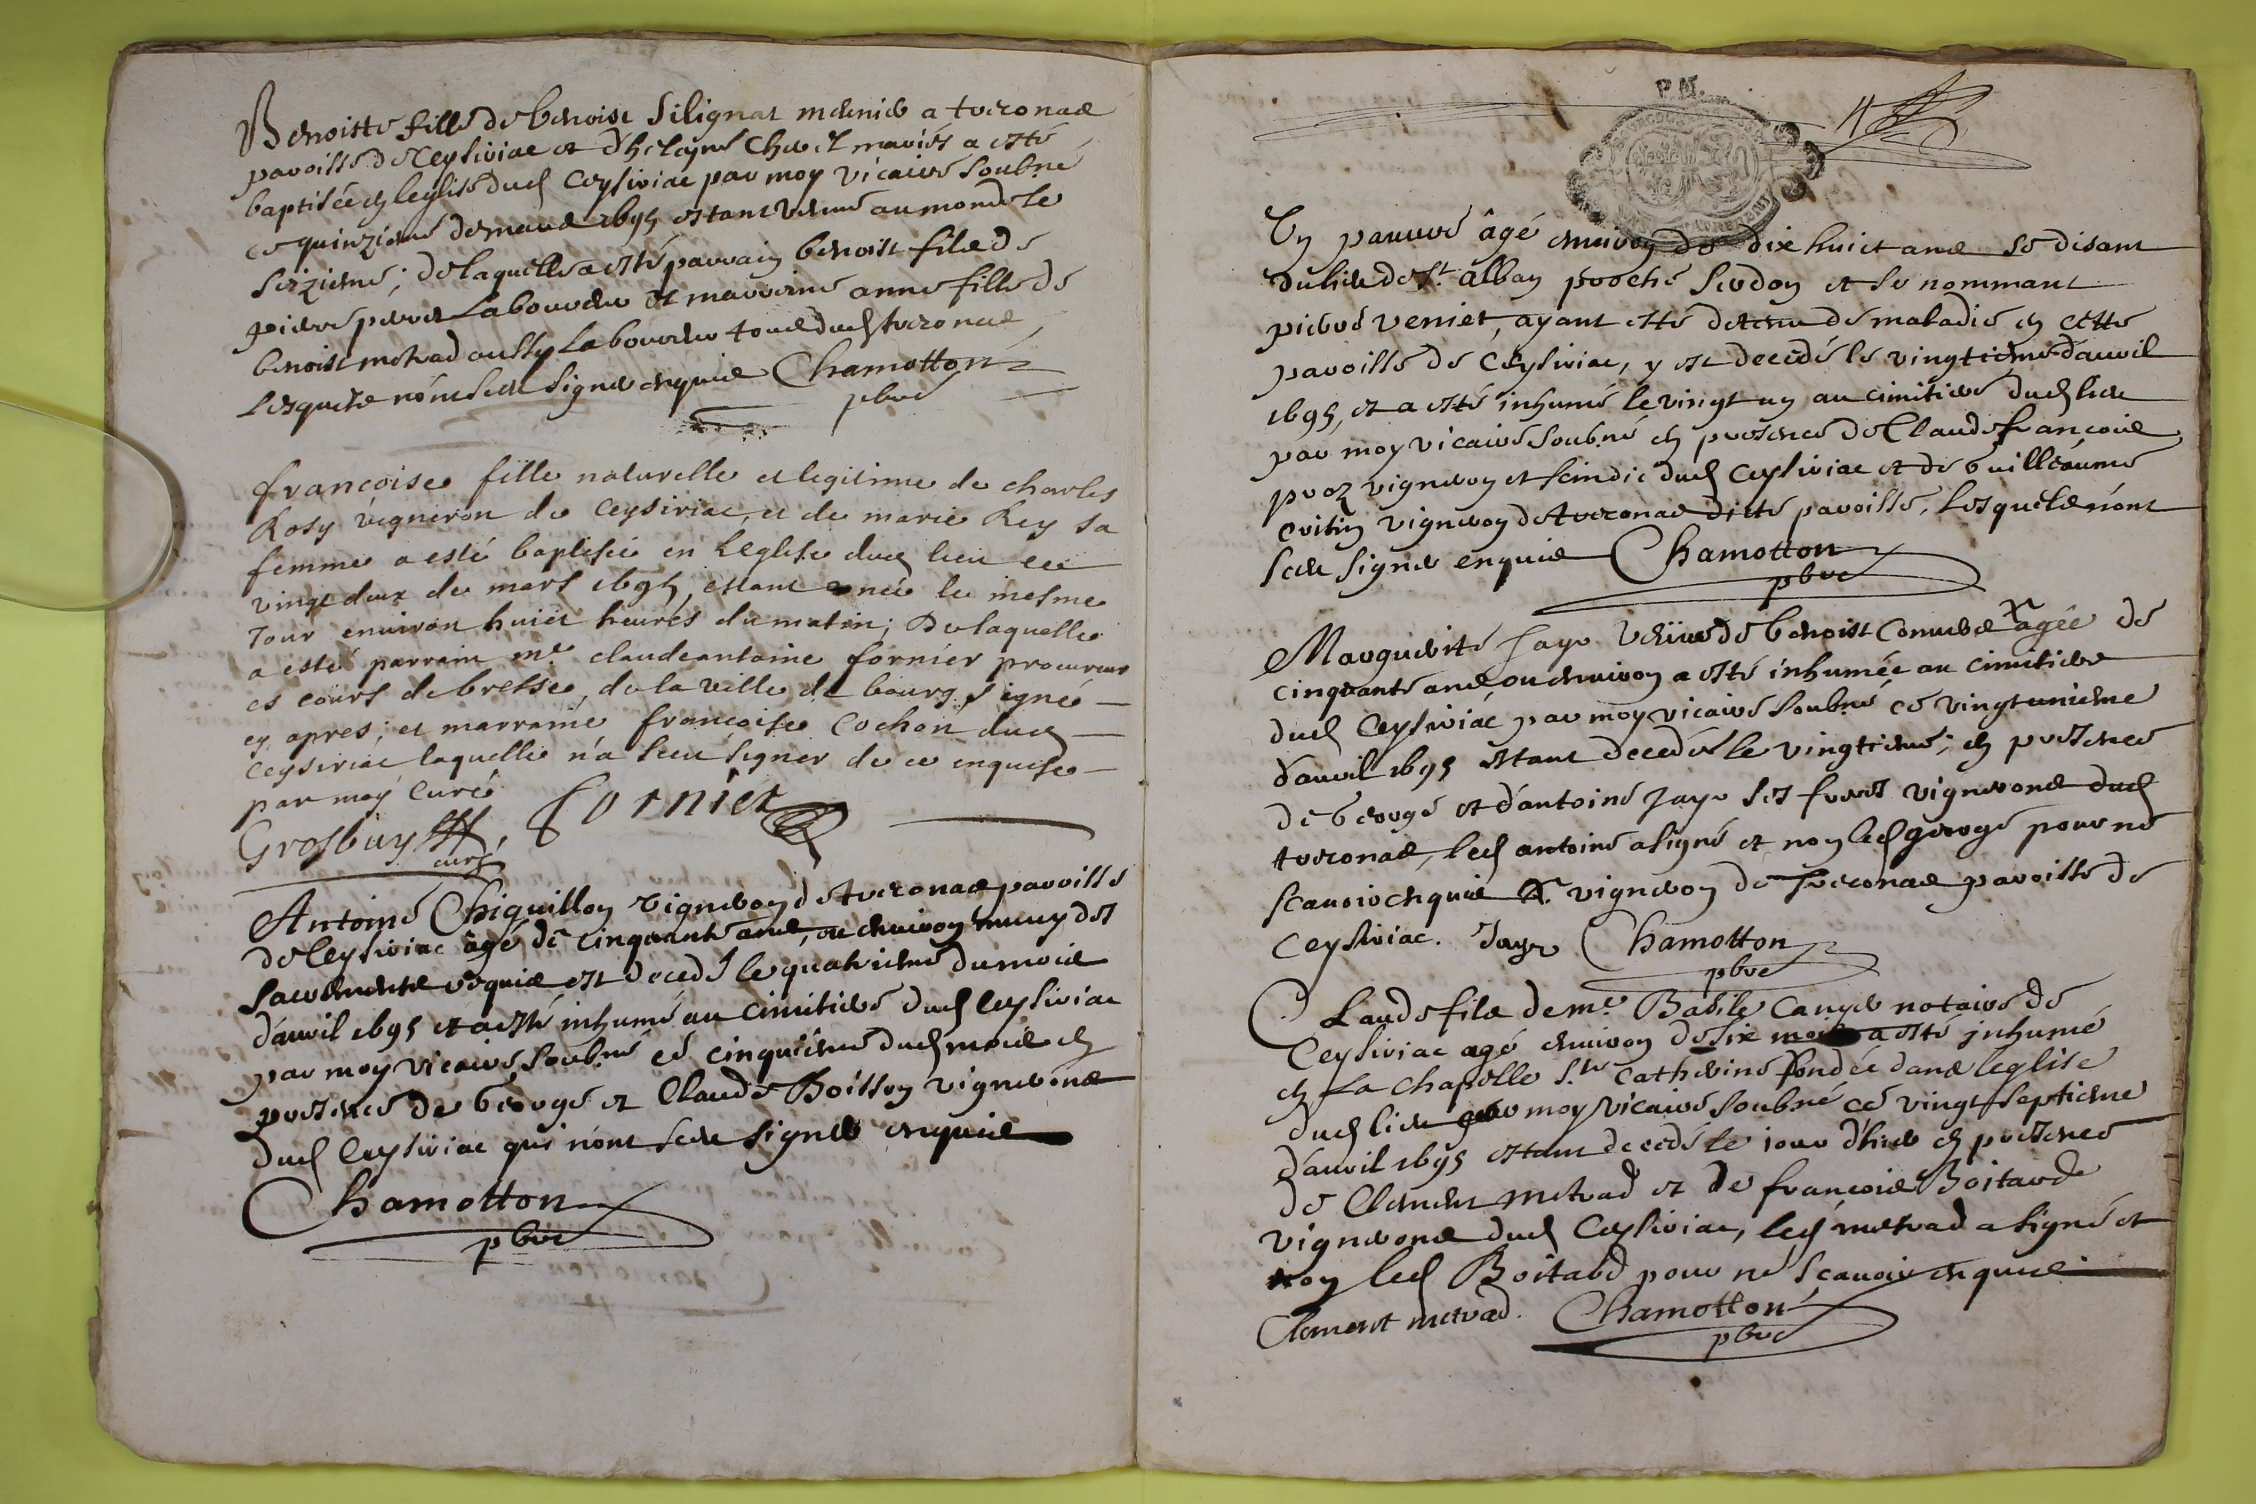 Benoiste fille de benoist Silignat meunier a tveronas
paroisse de Ceysiriac et d'heleyne Chevel mariés a esté
baptisée en leglise dud Ceysiriac par moy vicaire soubné
ce quinzieme de mars 1695 estant venue au monde le
seizieme; de laquelle a esté parrain benoist fils de
pierre perret laboureur et marreine anne fille de
benoist metrad aussy laboureur tous dud tveronas,
lesquels nont sceu signer enquis Chamotton
pbre
francoise fille naturelle et legitime de charles
Rosy vigneron de Ceysiriac, et de marie Rey sa
femme a esté baptisée en Leglise dud lieu ce
vingt deux de mars 1695, estant née le mesme
Jour environ huict heures du matin; De laquelle
a esté parrain me claude antoine fornier procureur
es cours de bresse, de la ville de bourg signé
cy apres; et marraine francoise Cochon dud
Ceysiriac laquelle n'a sceu signer de ce enquise
par moy Curé
Grosbuy curé, Fornier
Antoine Chiquillon vigneron de tveronas paroisse
de Ceysiriac âgé de cinquante ans, ou environ muny des
sacrements requis est decedé le quatrieme du mois
d'avril 1695 et a esté inhumé au cimitiere dud Ceysiriac
par moy vicaire soubné ce cinquieme dud mois en
presence de George et Claude Boisson vignerons
dud Ceysiriac qui n'ont sceu signer enquis
Chamotton
pbre
P.M.
Un pauvre âgé environ de dix huict ans se disant
du lieu de St alban proche Serdon et se nommant
pierre veniet, ayant esté detenu de maladie en cette
paroisse de Ceysiriac, y est decedé le vingtieme d'avril
1695, et a esté inhumé le vingt un au cimitiere dud lieu
par moy vicaire soubné en presence de Claude françois
vigneron et scindic dud Ceysiriac et de Guilleaume
vigneron de tveronas ditte paroisse, lesquels n'ont
sceu signer enquis Chamotton
pbre
Marguerite Jayr veuve de benoist Convers agée de
cinquante ans ou environ a esté inhumée au cimitiere
dud Ceysiriac par moy vicaire soubné ce vingtunieme
d'avril 1695 estant decedée le vingtieme; en presence
de George et d'antoine Jayr ses freres vignerons dud
tveronas, led antoine a signé et non led george pour ne
scavoir enquis vigneron de tveronas paroisse de
Ceysiriac. Jayr Chamotton
pbre
Claude fils de me Basile Canyer notaire de
Ceysiriac agé environ de six mois a esté inhumé
en la chapelle Ste Catherine fondée dans leglise
dud lieu par moy vicaire soubné ce vingt septieme
d'avril 1695 estant decedé le jour d'hier en presence
de Clement metrad et de françois Boitard
vignerons dud Ceysiriac, led metrad a signé et
non led Boitard pour ne scavoir enquis
Clement metrad. Chamotton
pbre